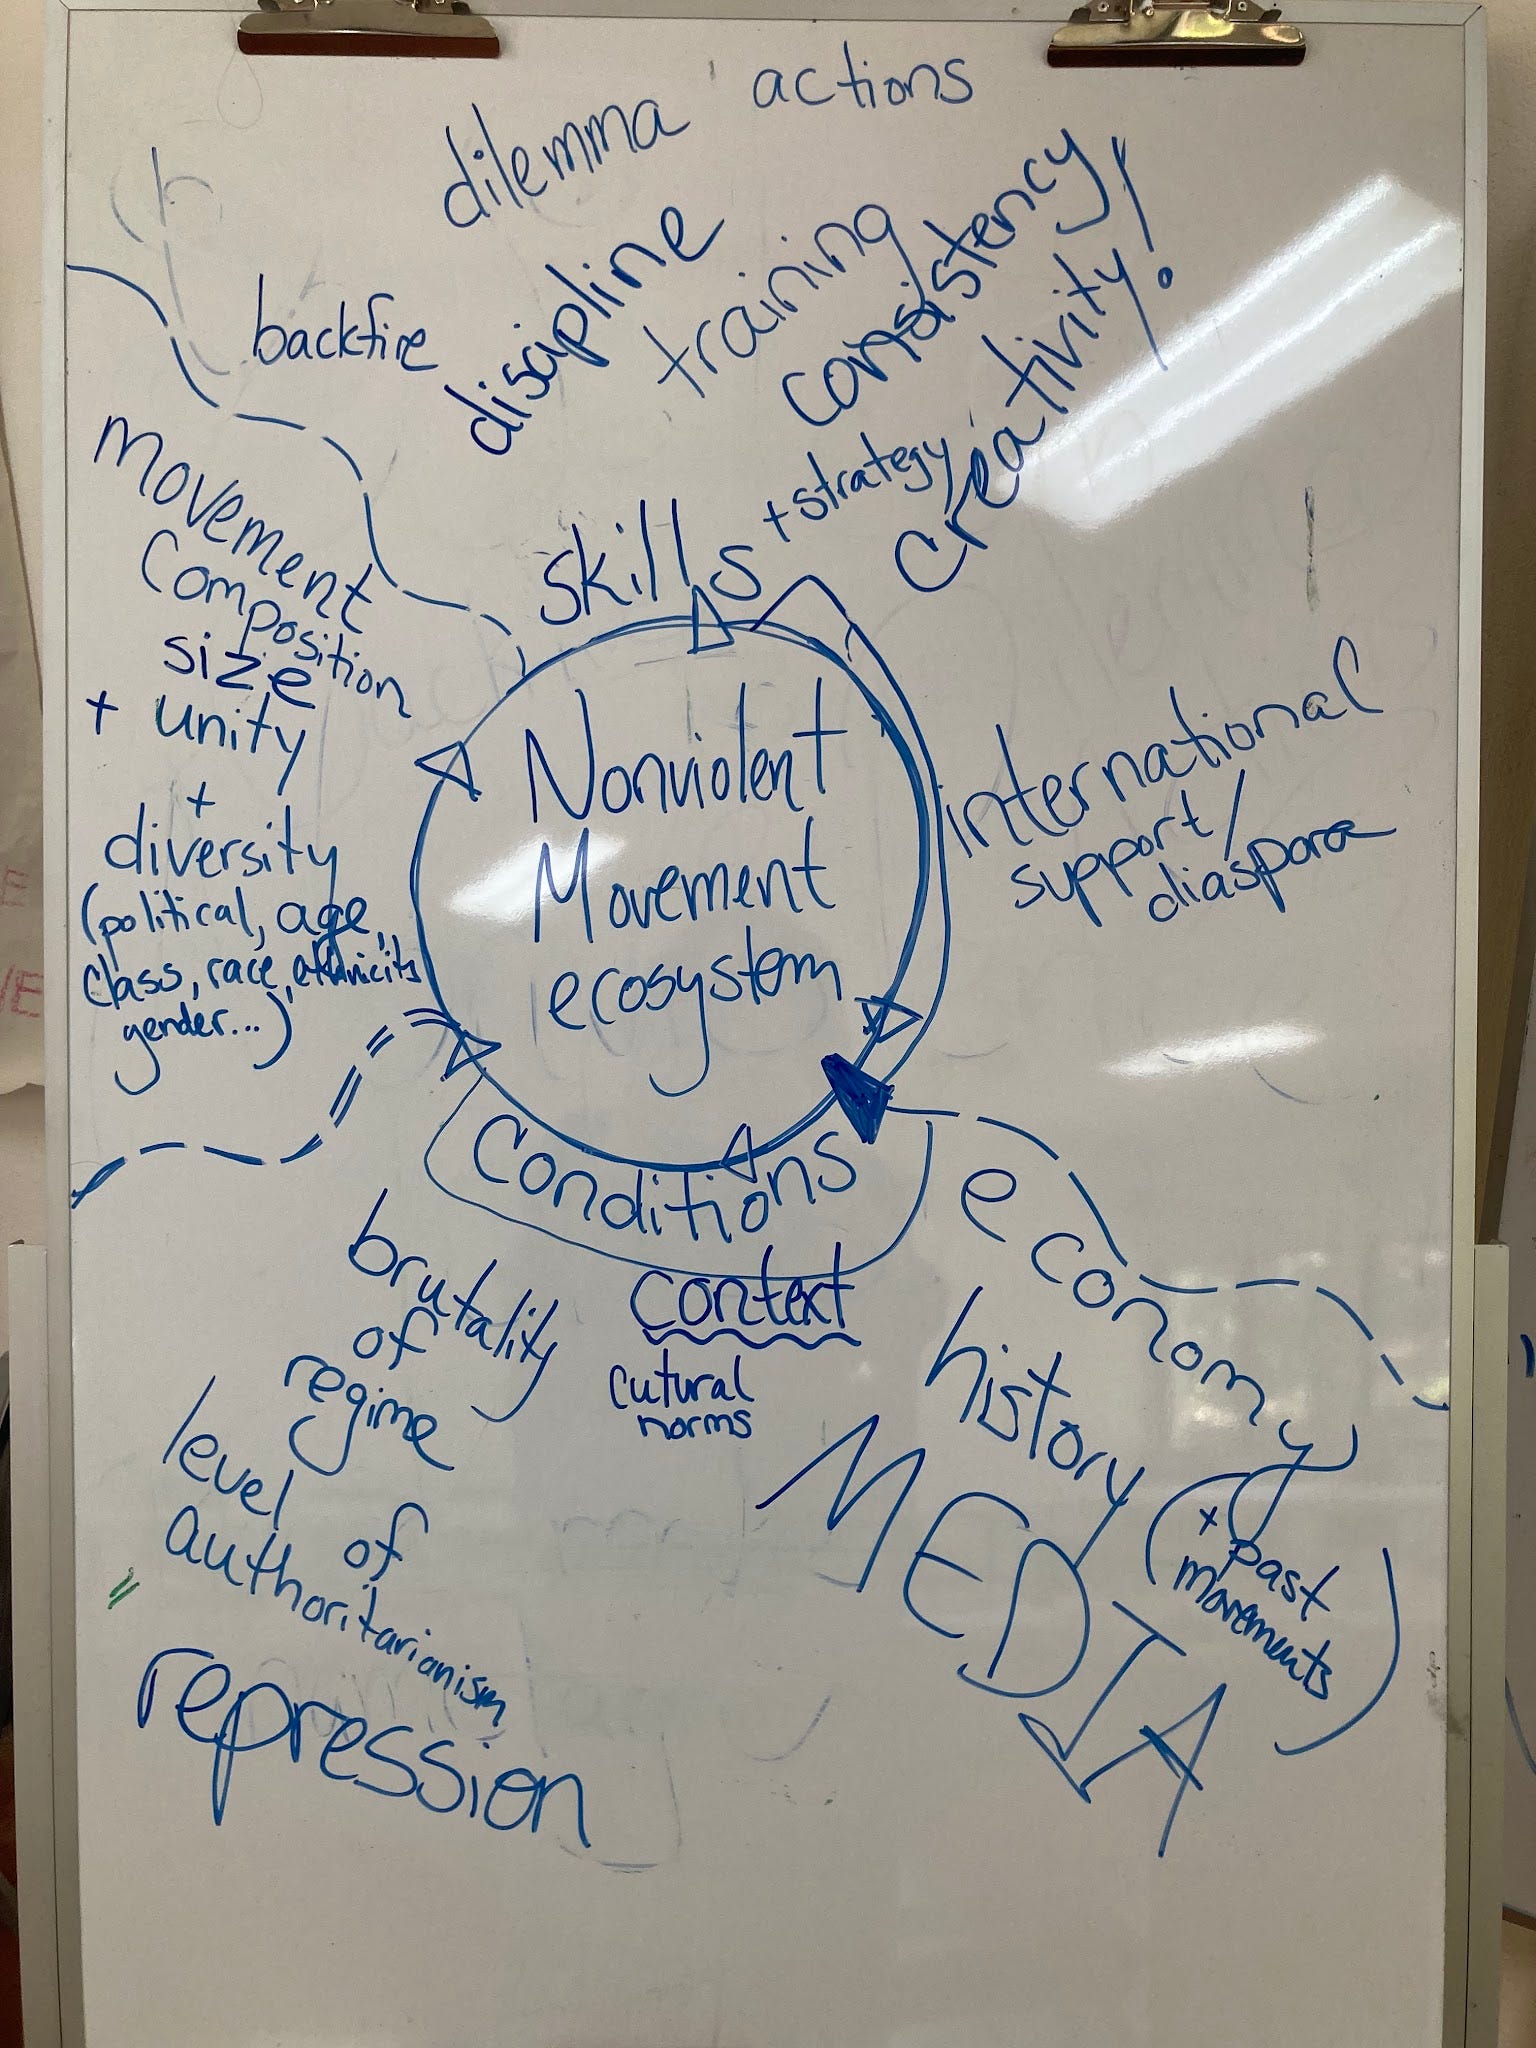 dilemma actions
backfire
discipline
training
consistency
creativity!
skills + strategy
movement
composition
size
+ unity
+
diversity
(political, age,
class, race, ethnicity
gender...)
Nonviolent
Movement
ecosystem
international
support/
diaspora
conditions
context
cutural
norms
brutality
of
regime
level of
authoritarianism
repression
economy
history
(+ past
movements)
MEDIA